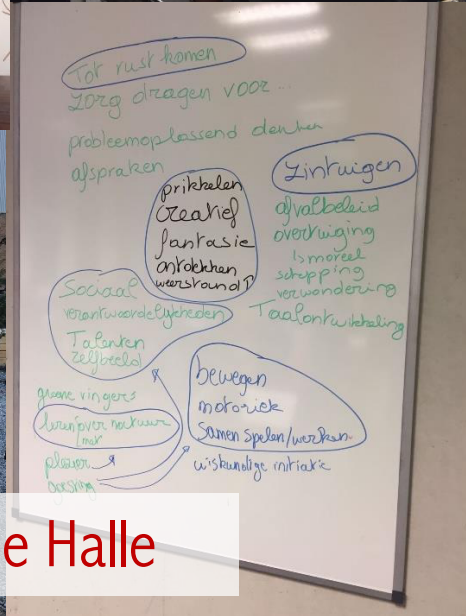 Tot rust komen
zorg dragen voor...
probleemoplossend denken
afspraken
zintuigen
prikkelen
creatief
fantasie
ontdekken
weerstand↑
afvalbeleid
overtuiging
is moreel
schepping
verwondering
Taalontwikkeling
Sociaal
verantwoordelijkheden
Talenten
zelfbeeld
groene vingers
leren over natuur
met
plezier
goesting
bewegen
motoriek
samen spelen/werken
wiskundige initiatie
e Halle